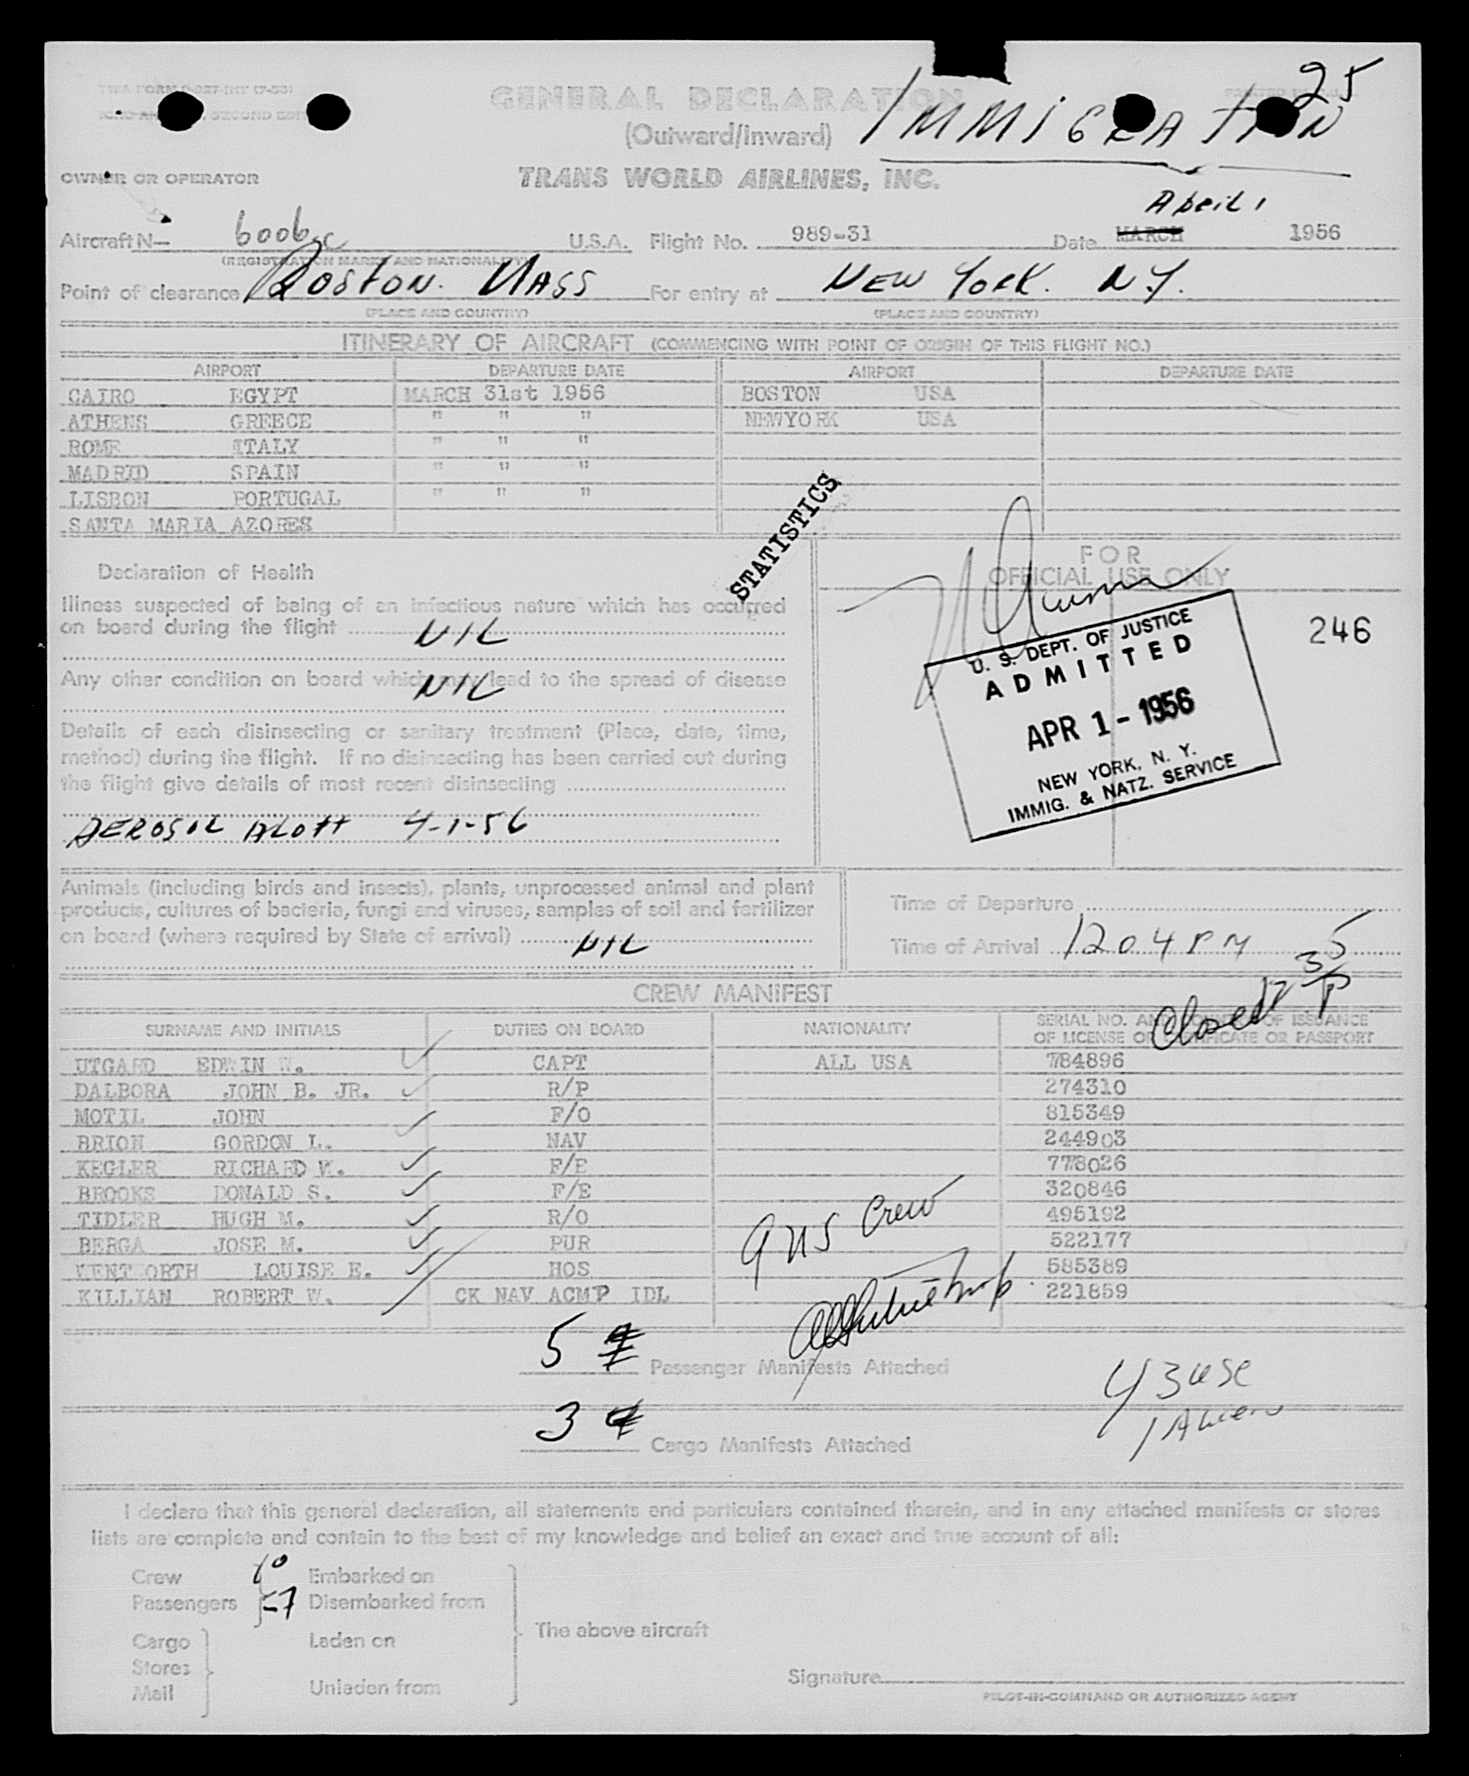 25
TWA FORM
SECOND EDI
GENERAL DECLARATION
(Outward/Inward)
IMMIGRATION
OWNER OR OPERATOR
TRANS WORLD AIRLINES, INC.
April 1
Aircraft N— 6006 C U.S.A. Flight No. 989-31 Date MARCH 1956
(REGISTRATION MARKS AND NATIONALITY)
Point of clearance Boston. Mass For entry at New York. N.Y.
(PLACE AND COUNTRY) (PLACE AND COUNTRY)
ITINERARY OF AIRCRAFT (COMMENCING WITH POINT OF ORIGIN OF THIS FLIGHT NO.)
AIRPORT DEPARTURE DATE AIRPORT DEPARTURE DATE
CAIRO EGYPT MARCH 31st 1956 BOSTON USA
ATHENS GREECE " " " NEWYORK USA
ROME ITALY " " "
MADRID SPAIN " " "
LISBON PORTUGAL " " "
SANTA MARIA AZORES
STATISTICS
Declaration of Health
Illness suspected of being of an infectious nature which has occurred
on board during the flight NIL
Any other condition on board which may lead to the spread of disease
NIL
Details of each disinsecting or sanitary treatment (Place, date, time,
method) during the flight. If no disinsecting has been carried out during
the flight give details of most recent disinsecting
AEROSOL ALOFT 4-1-56
FOR
OFFICIAL USE ONLY
246
U. S. DEPT. OF JUSTICE
ADMITTED
APR 1 - 1956
NEW YORK, N. Y.
IMMIG. & NATZ. SERVICE
Animals (including birds and insects), plants, unprocessed animal and plant
products, cultures of bacteria, fungi and viruses, samples of soil and fertilizer
on board (where required by State of arrival) NIL
Time of Departure
Time of Arrival 1204 PM
Closed 12 35 P
CREW MANIFEST
SURNAME AND INITIALS DUTIES ON BOARD NATIONALITY SERIAL NO. AND COUNTRY OF ISSUANCE
OF LICENSE OR CERTIFICATE OR PASSPORT
UTGARD EDWIN W. CAPT ALL USA 784896
DALBORA JOHN B. JR. R/P 274310
MOTIL JOHN F/O 815349
BRION GORDON L. NAV 244903
KEGLER RICHARD W. F/E 778026
BROOKS DONALD S. F/E 320846
TIDLER HUGH M. R/O 495192
BERGA JOSE M. PUR 522177
WENTWORTH LOUISE E. HOS 585389
KILLIAN ROBERT W. CK NAV ACMP IDL 221859
9 US Crew
5 Passenger Manifests Attached
43 USC
1 Alien
3 4 Cargo Manifests Attached
I declare that this general declaration, all statements and particulars contained therein, and in any attached manifests or stores
lists are complete and contain to the best of my knowledge and belief an exact and true account of all:
Crew 10 Embarked on
Passengers 57 Disembarked from
The above aircraft
Cargo Laden on
Stores
Mail Unladen from
Signature
PILOT-IN-COMMAND OR AUTHORIZED AGENT